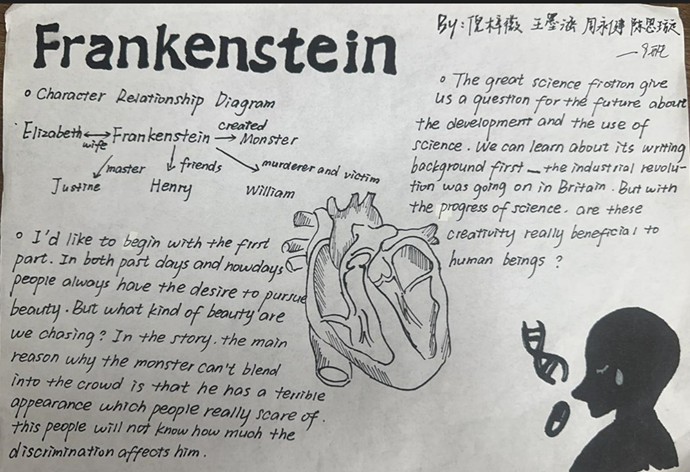 Frankenstein
By: 倪梓薇 王墨涵 周永倩 陈思璇
Character Relationship Diagram
Elizabeth Frankenstein created Monster
wife
master friends murderer and victim
Justine Henry William
I'd like to begin with the first
part. In both past days and nowdays
people always have the desire to pursue
beauty. But what kind of beauty are
we chasing? In the story. the main
reason why the monster can't blend
into the crowd is that he has a terrible
appearance which people really scare of.
this people will not know how much the
discrimination affects him.
The great science friction give
us a question for the future about
the development and the use of
science. We can learn about its writing
background first — the industrial revolu-
tion was going on in Britain. But with
the progress of science. are these
creativity really beneficial to
human beings?